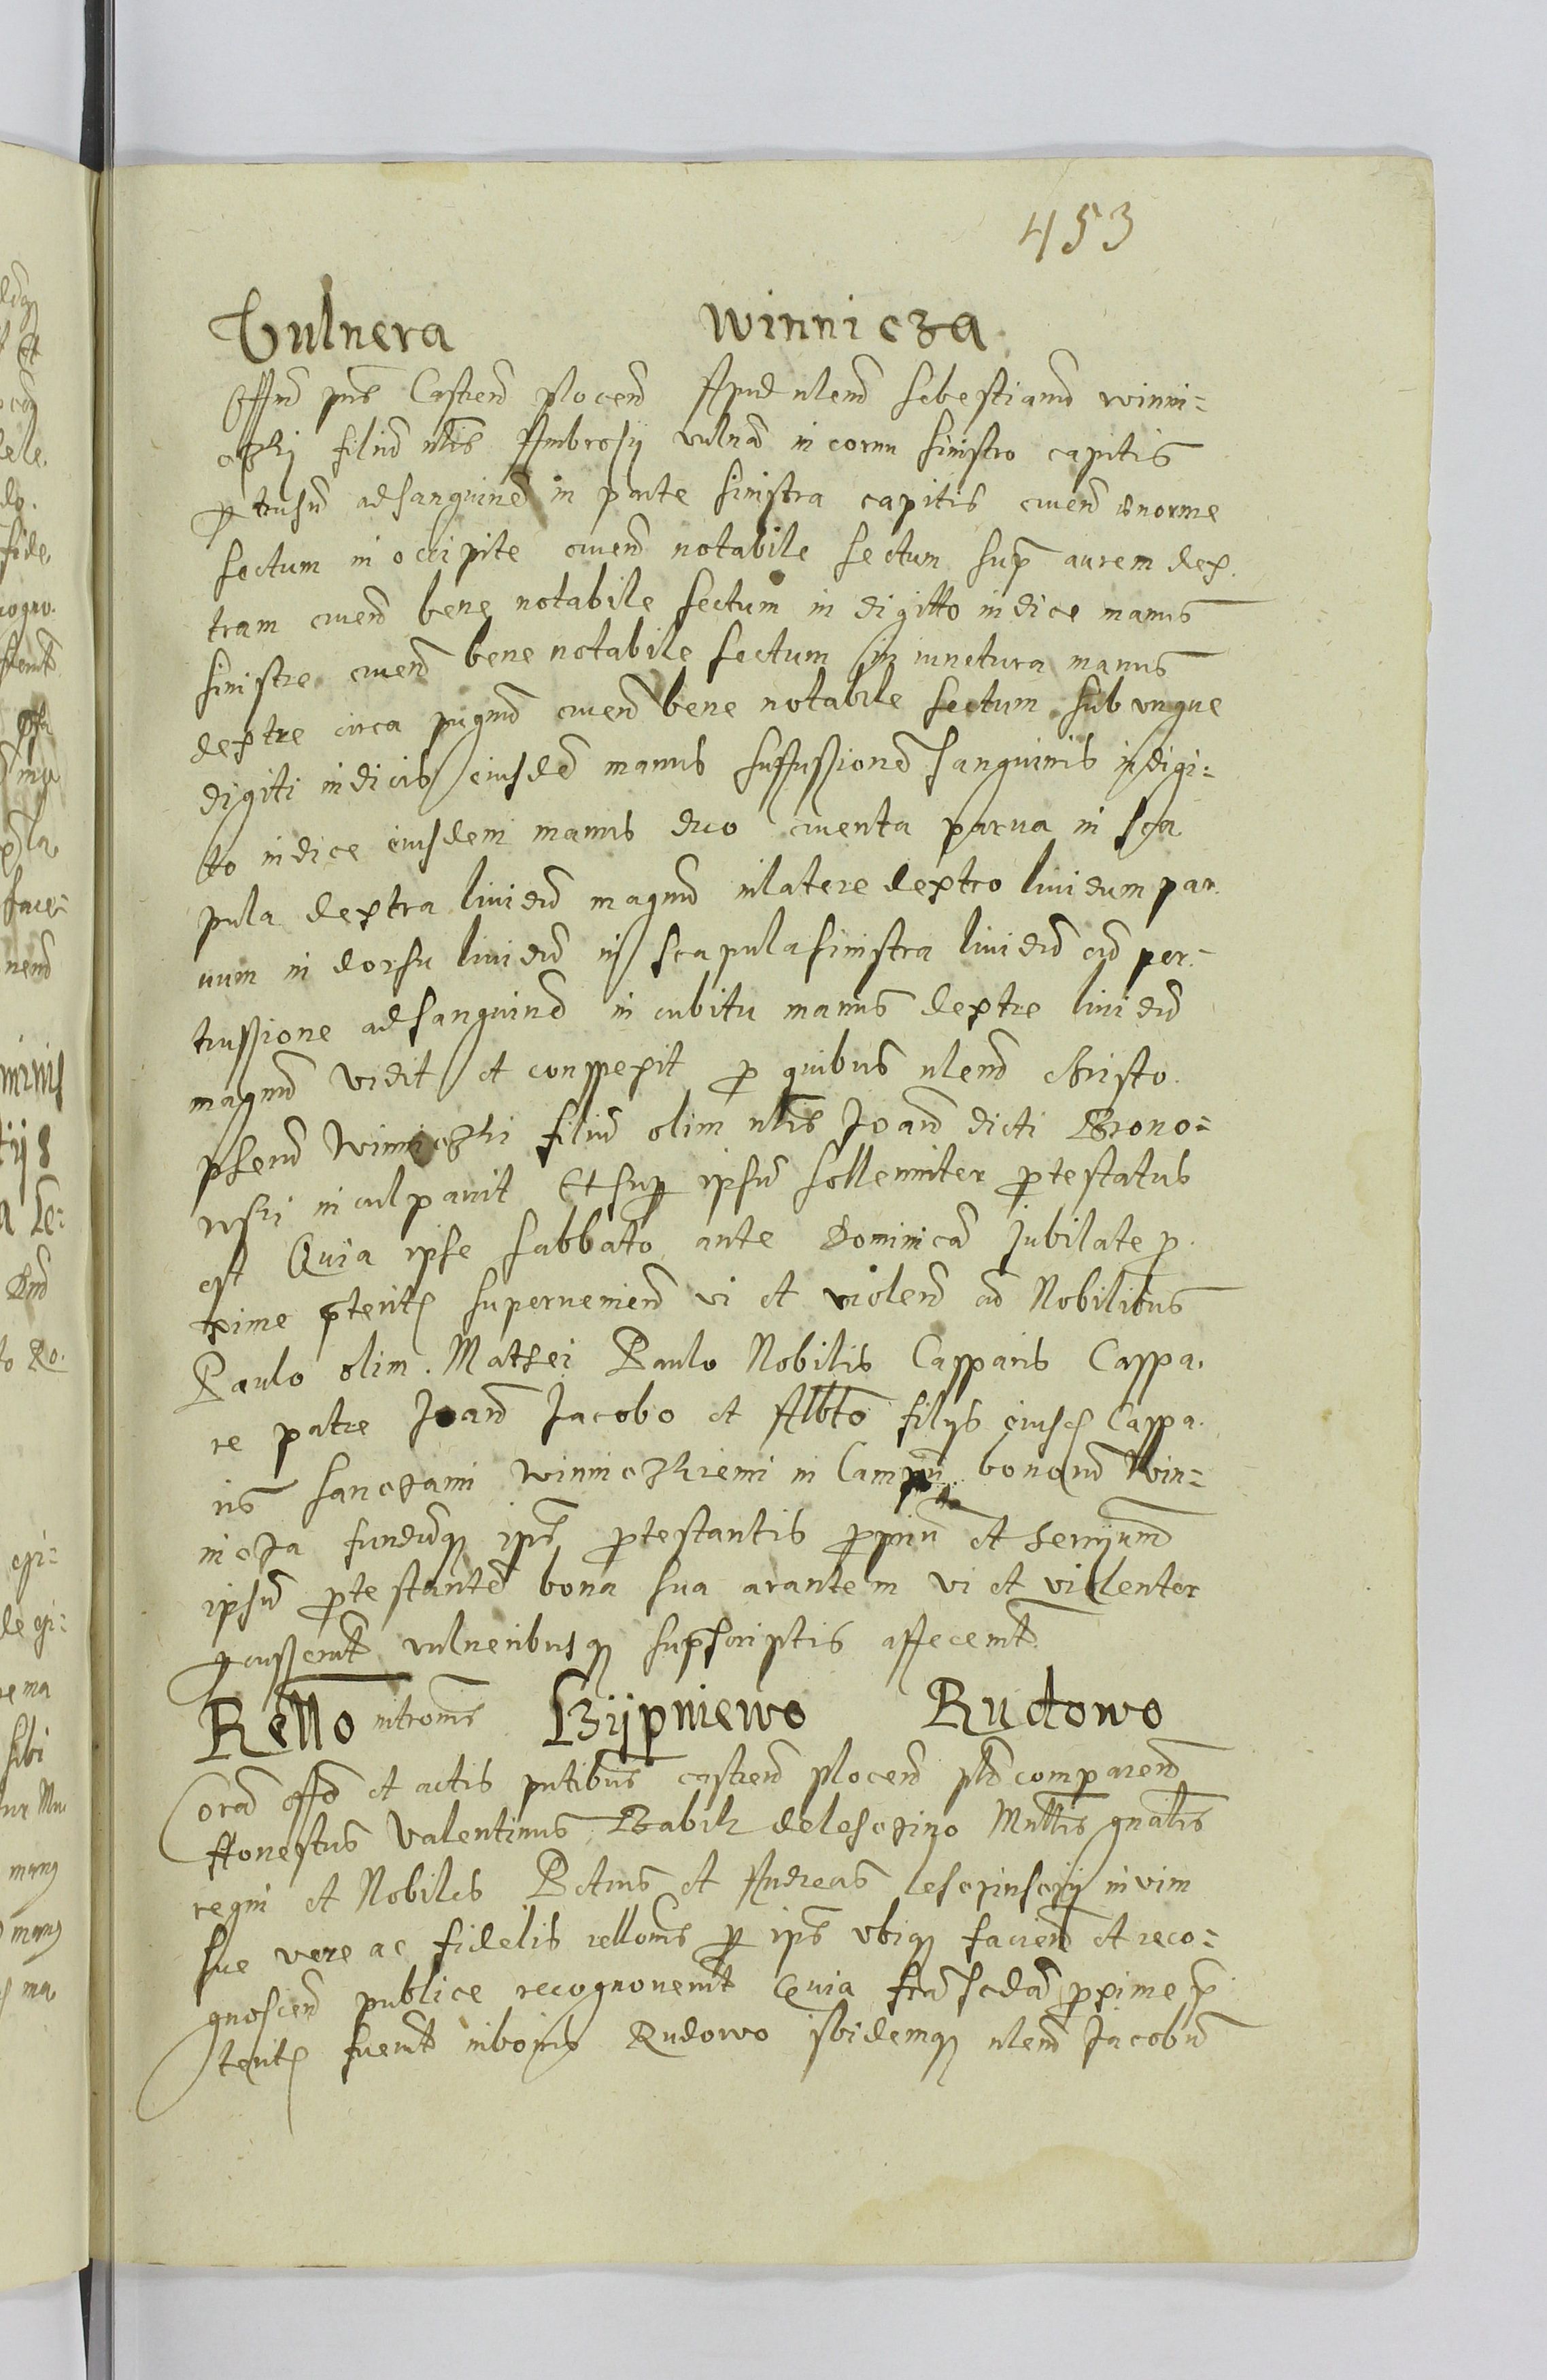 453
Vulnera Winnicza
Offm pns Castren plocen Apud nlem Sebestianu winni=
czki filiu nlis Ambrosij vulna in cornu sinistro capitis
ptusu ad sanguine in parte sinistra capitis cruen enorme
sectum in occipite cruen notabile sectum sup aurem dex.
tram cruen bene notabile sectum in digitto indice manus
sinistre cruen bene notabile sectum in iunctura manus
dextre circa pugnu cruen bene notabile sectum sub ungue
digiti indicis eiusde manus suffusione sanguinis in digi=
to indice eiusdem manus duo cruenta parua in sca
pula dextra liuidu magnu in latere dextro liuidum par.
uum in dorsu liuidu in scapula sinistra liuidu cu per=
tussione ad sanguine in cubitu manus dextre liuidu
magnu vidit et conspexit p quibus nlem Christo.
pheru Winniczki filiu olim nlis Joan dicti Brono=
wski inculpauit Et sup ipsu sollemniter ptestatus
est Quia ipse sabbato ante Dominica Jubilate p.
xime pterit superuenien vi et violen cu Nobilibus
Paulo olim Mathei Paulo Nobilis Casparis Caspa.
re patre Joan Jacobo et Albto filijs eiusd Caspa.
ris Sanczami Winniczkiemi in Campu bonoru Win=
nicza fundumq ips ptestantis ppriu et
ipsu ptestante bona sua arantem vi et violenter
pcusserut vulneribusq supscriptis affecerut
Rello intromis Bijpniewo Rudowo
Cora offo et actis pntibus castren plocen plr comparen
Honestus Valentinus Babik de Lesczino Mnlis gnalis
regni et Nobiles Petrus et Andreas Lesczinsczij in vim
sue vere ac fidelis rellonis p ips vbiq facien et reco=
gnoscen publice recognouerut Quia fria scda pxime p
terit fuerut in bonis Rudowo ibidemq nlem Jacobu